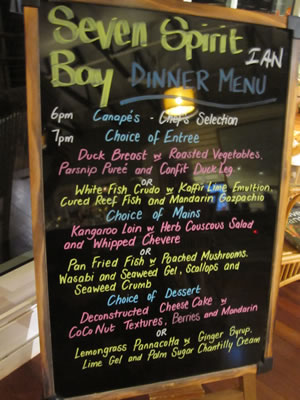 Seven Spirit
Bay
IAN
DINNER MENU
6pm Canapés - Chef's Selection
7pm Choice of Entree
Duck Breast w Roasted Vegetables,
Parsnip Pureé and Confit Duck Leg.
OR
White Fish Crudo w Kaffir Lime Emultion,
Cured Reef Fish and Mandarin Gazpachio
Choice of Mains
Kangaroo Loin w Herb Couscous Salad
and Whipped Chevere
OR
Pan Fried Fish w Poached Mushrooms.
Wasabi and Seaweed Gel, Scallops and
Seaweed Crumb
Choice of Dessert
Deconstructed Cheese Cake w
CoCo Nut Textures, Berries and Mandarin
OR
Lemongrass Pannacotta w Ginger Syrup,
Lime Gel and Palm Sugar Chantilly Cream